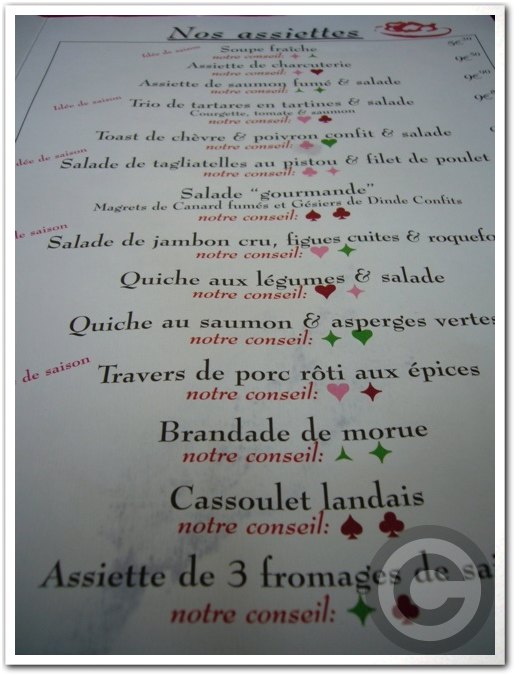 Nos assiettes
Idée de saison Soupe fraîche 5€,50
notre conseil:
Assiette de charcuterie 9€,50
notre conseil:
Assiette de saumon fumé & salade 9€,90
notre conseil:
Idée de saison Trio de tartares en tartines & salade
Courgette, tomate & saumon
notre conseil:
Toast de chèvre & poivron confit & salade
notre conseil:
Idée de saison Salade de tagliatelles au pistou & filet de poulet
notre conseil:
Salade "gourmande"
Magrets de Canard fumés et Gésiers de Dinde Confits
notre conseil:
de saison Salade de jambon cru, figues cuites & roquefo
notre conseil:
Quiche aux légumes & salade
notre conseil:
Quiche au saumon & asperges vertes
notre conseil:
de saison Travers de porc rôti aux épices
notre conseil:
Brandade de morue
notre conseil:
Cassoulet landais
notre conseil:
Assiette de 3 fromages de sai
notre conseil: